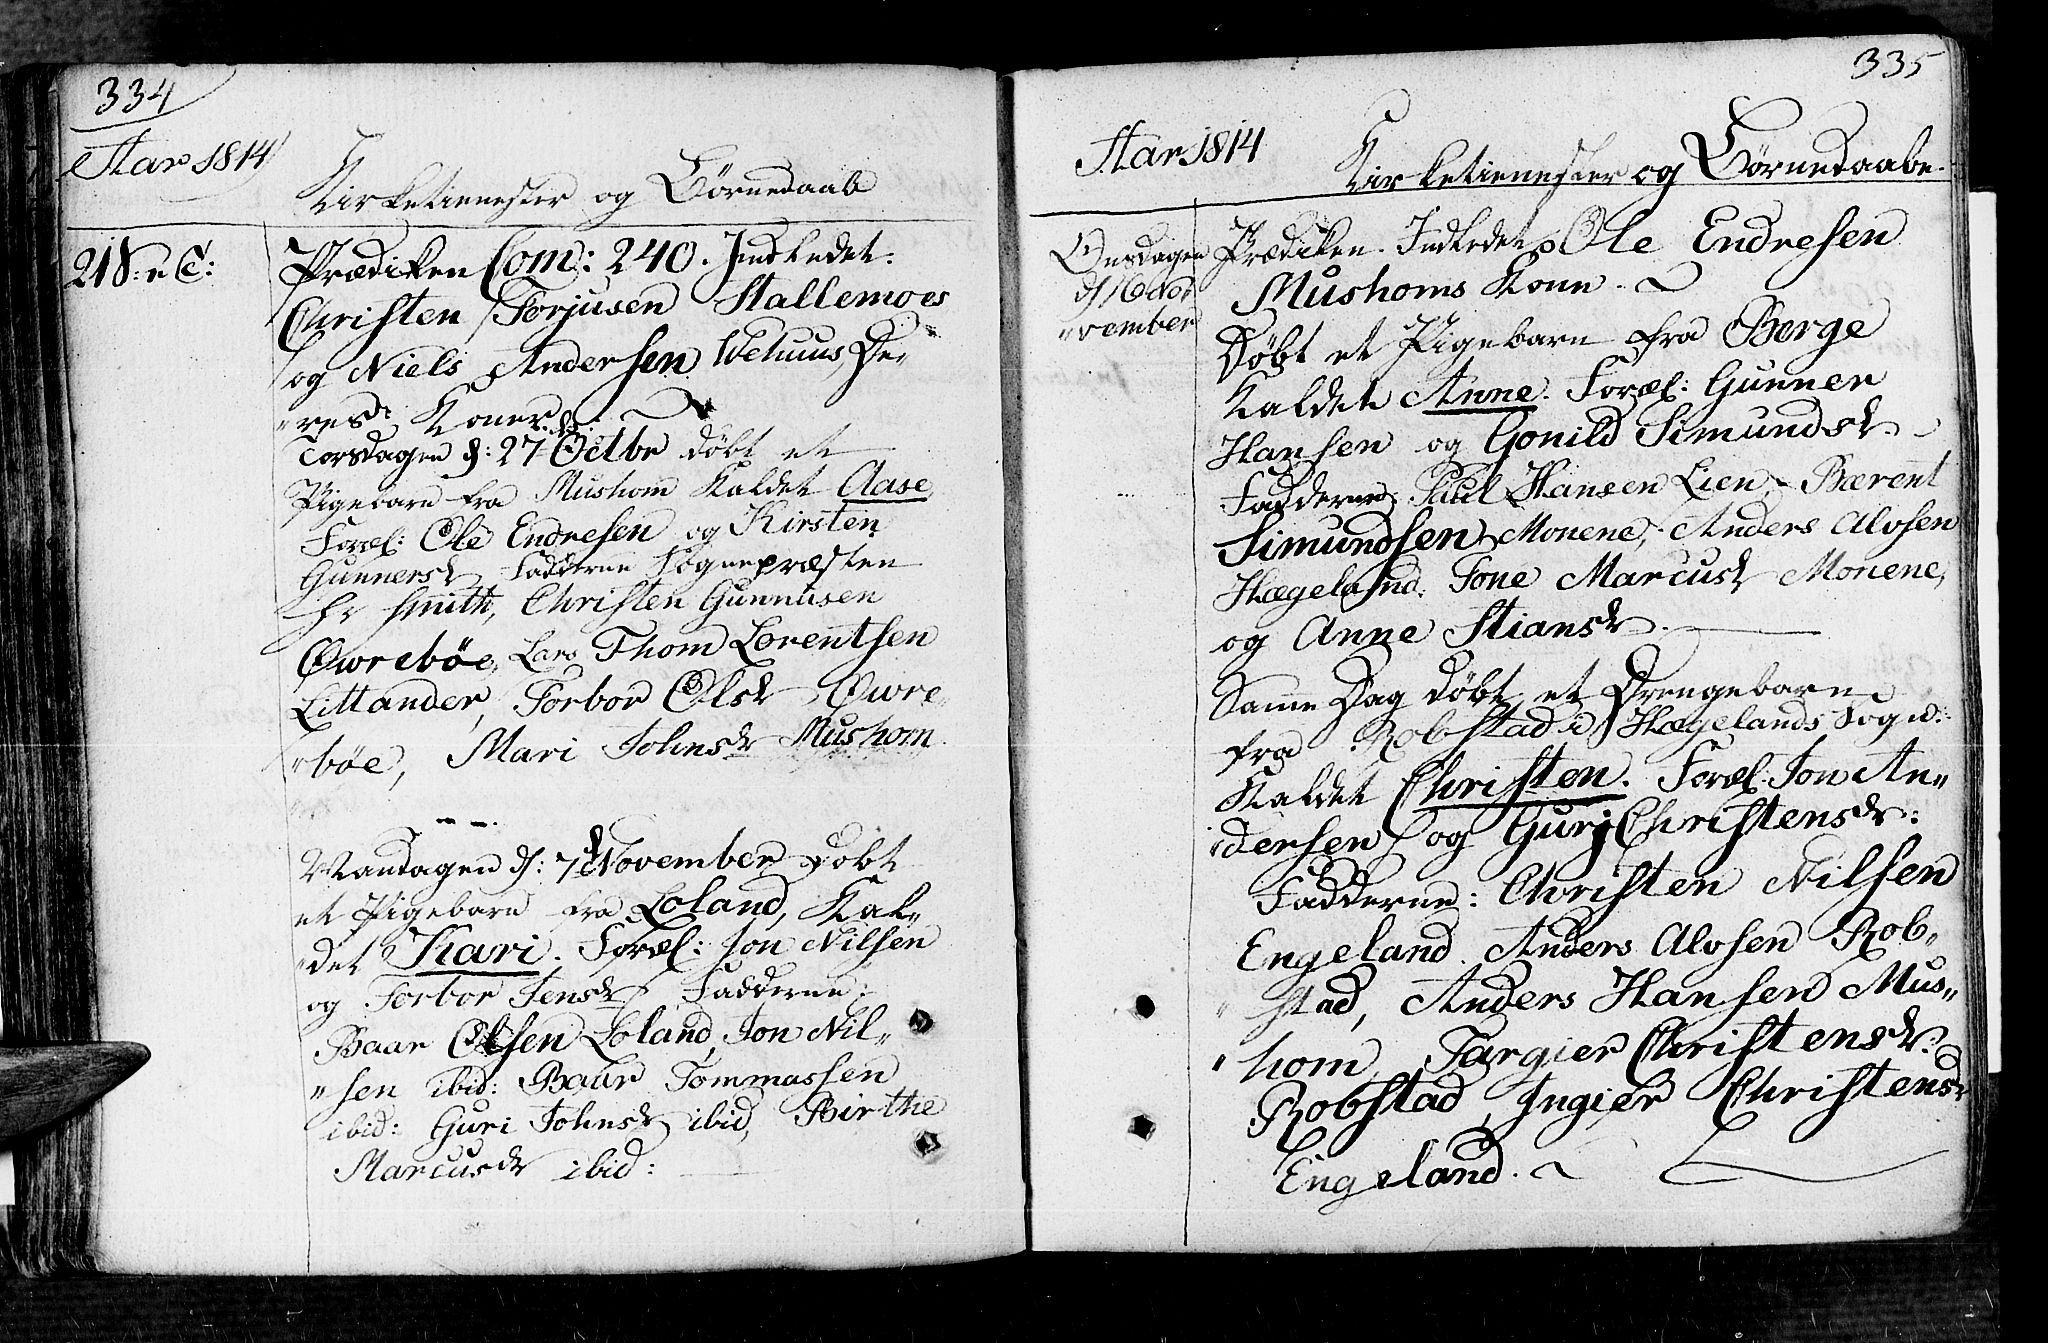 334
Aar 1814
Kirketienester og Børnedaab
Prædiken Com: 240. Indledet:
Christen Torjusen Stallemoes
og Niels Andersen De„
„res Koner.
Torsdagen d: 27 Octbr døbt et
Pigebarn fra Mushom Kaldet Aase
Foræl: Ole Endresen og Kirsten
Gunnersdr Fadderne Sognepræsten
Hr Smith, Christen Gunnusen
Øwrebøe, Lars Thom Lorentsen
Littander, Torbor Olsdr Øwre„
„bøe, Mari Johnsdr Mushom
Mandagen d: 7d November Døbt
et Pigebarn fra Loland, Kal„
„det Kari. Foræl: Jon Nilsen
og Torbor Jensdr Fadderne:
Baar Olsen Loland, Jon Nil„
„sen ibid: Baar Tommassen
ibid: Guri Johnsdr ibid, Birthe
Marcusdr ibid:
335
Aar 1814
Kirketienester og Børnedaabe.
Onsdagen
d 16 No„
„vember
Prædiken. Indledet Ole Endresen
Mushoms Kone.
Døbt et Pigebarn fra Berge
Kaldet Anne. Foræl: Gunner
Hansen og Gonild Simundsdr
Fadderne. Paul Hansen Lien, Bærent
Simundsen Monene, Anders Alvsen
Hægeland. Tone Marcusdr Monene,
og Anne Stiansdr.
Samme Dag døbt et Drengebarn
fra Robstad i Hægelands Sogn:
Kaldet Christen. Foræl. Jon An„
„dersen og Guri Christensdr:
Fadderne: Christen Nilsen
Engeland. Anders Alvsen Rob„
„stad, Anders Hansen Mus„
„hom, Targier Christensdr
Robstad, Ingier Christensdr
Engeland.